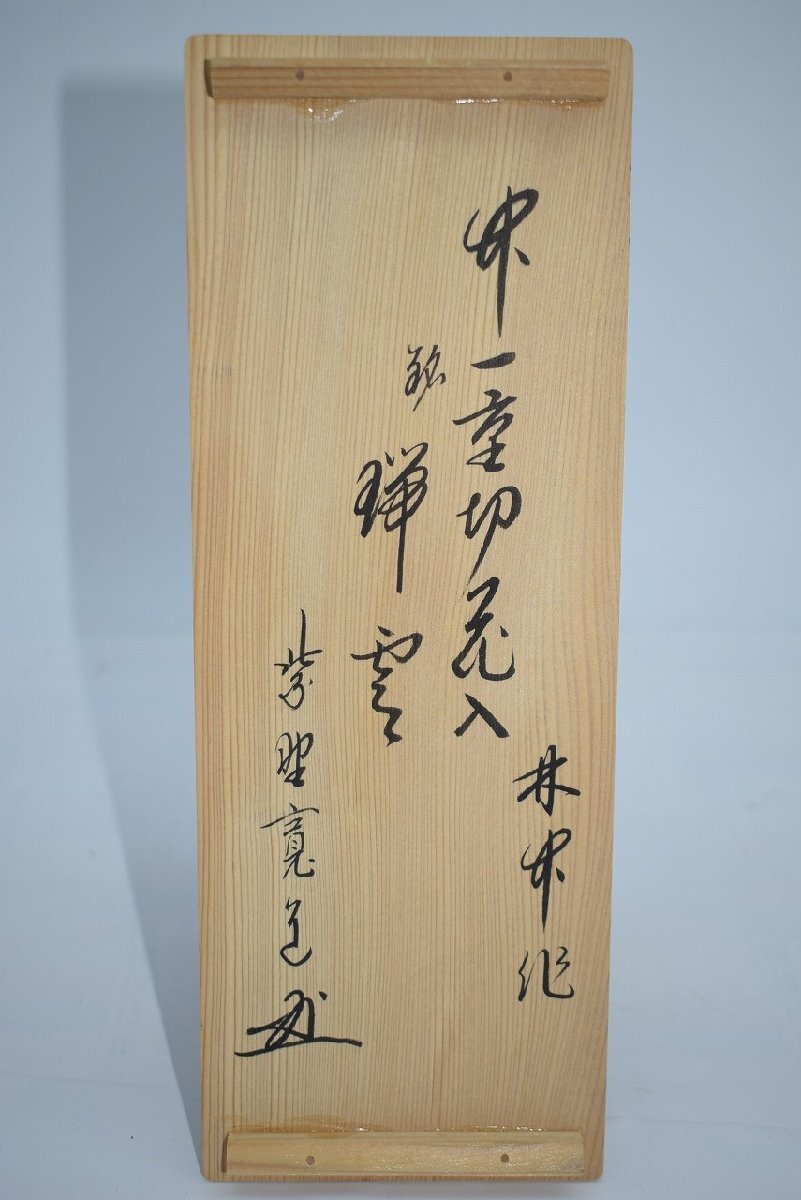 竹一重切花入
林竹作
銘
禅雲
紫野寛道